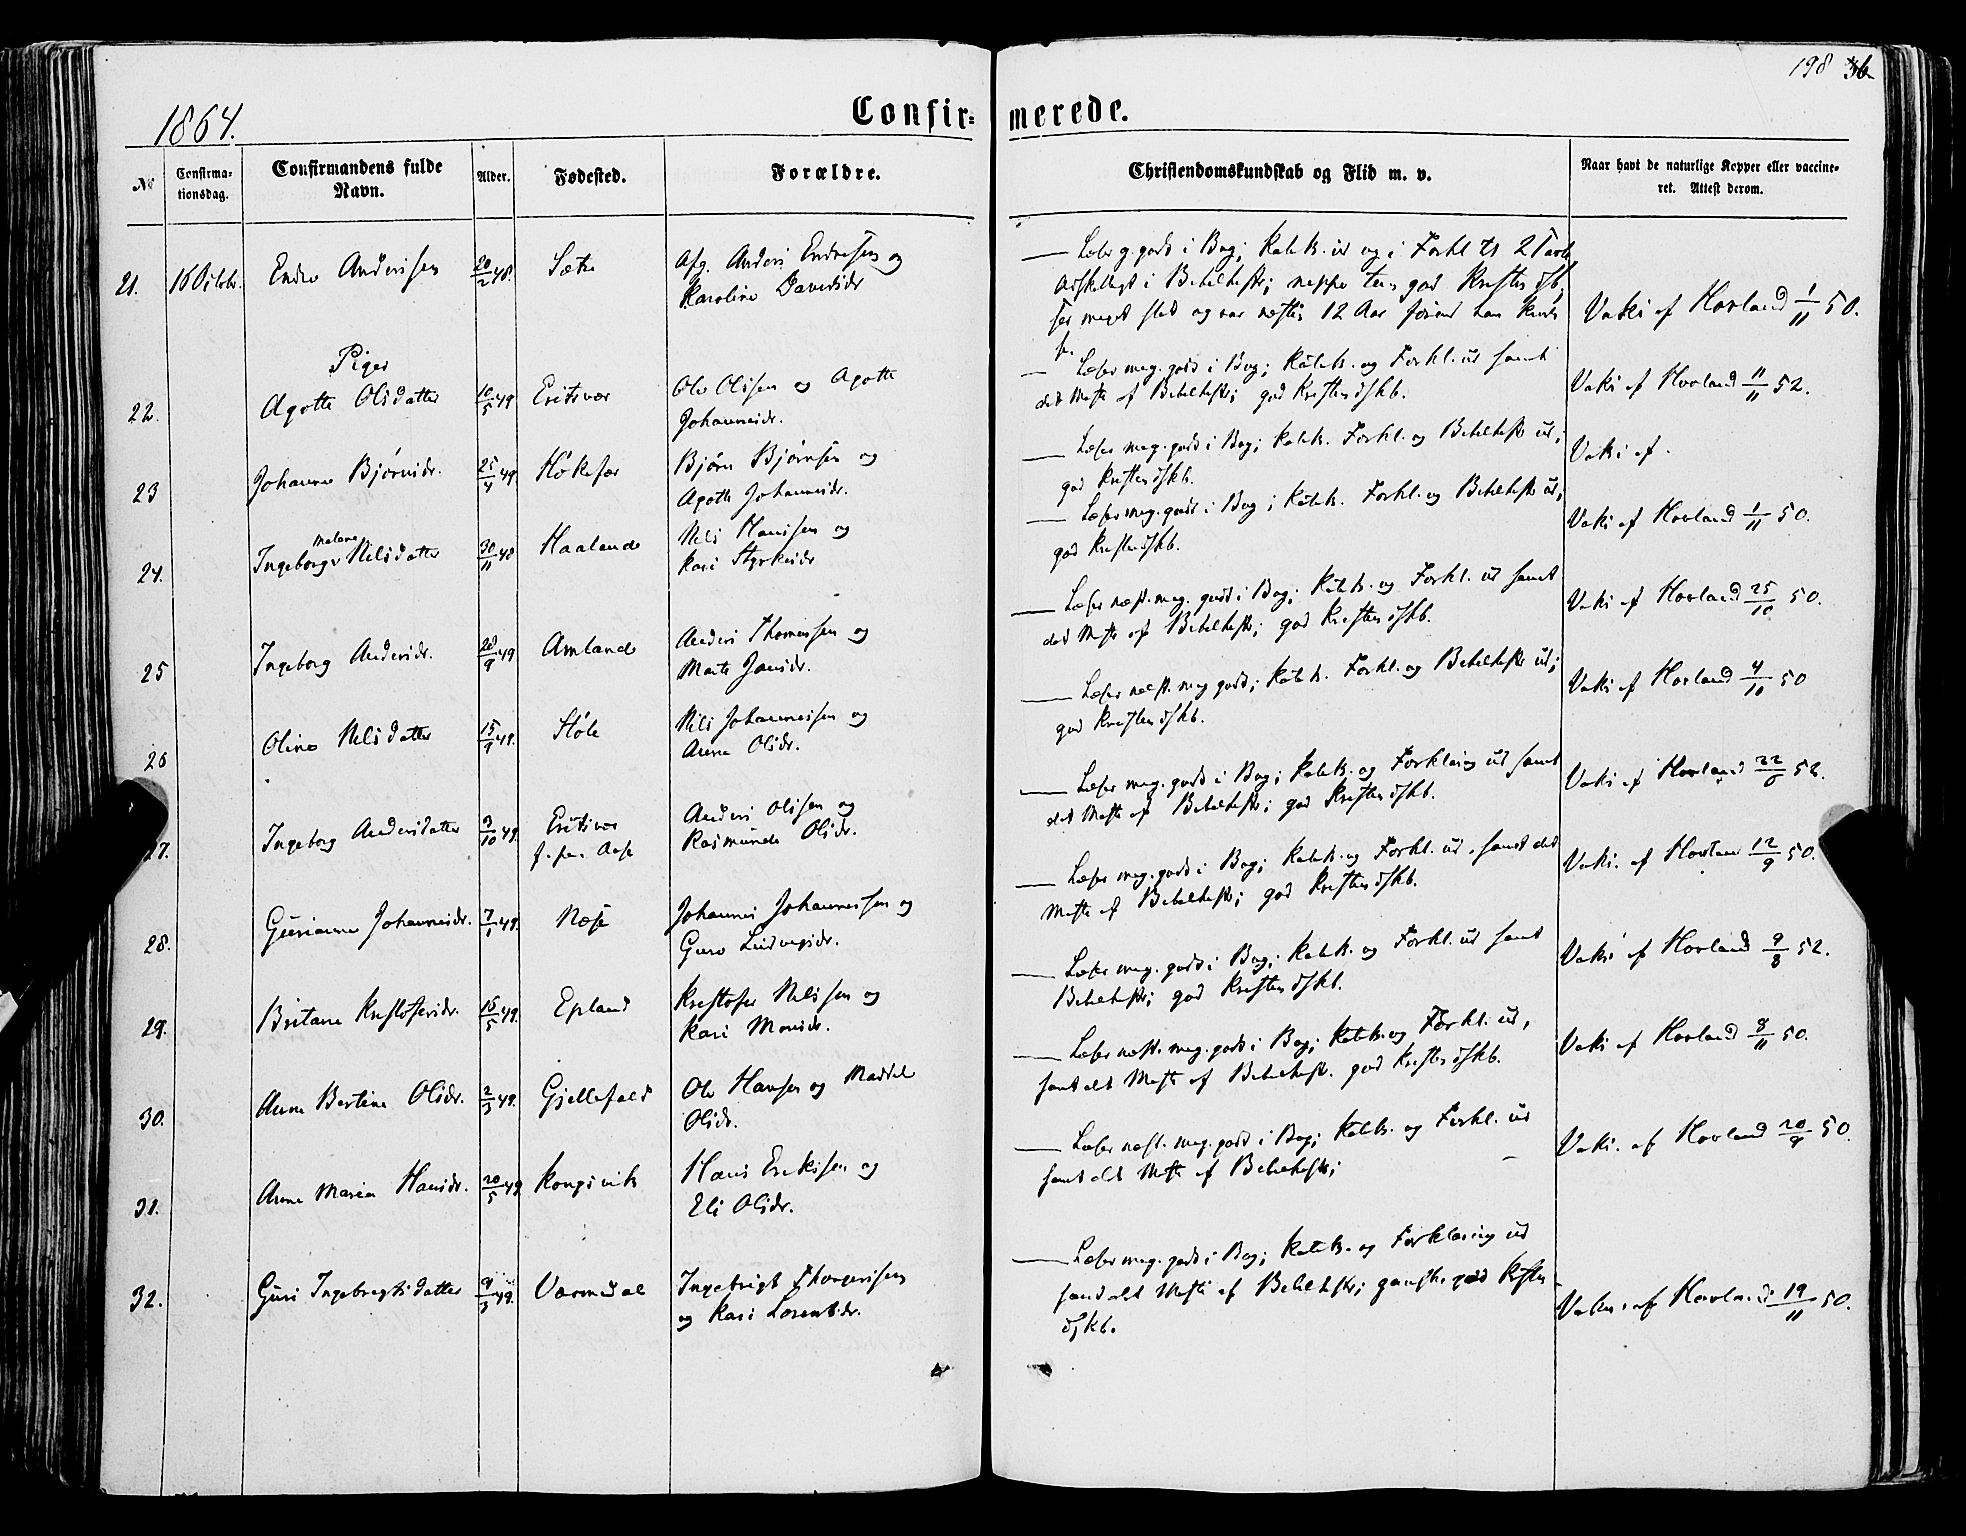 198 36
1864.
Confir=
merede.
No
Confirma-
tionsdag.
Confirmandens fulde
Navn.
Alder.
Fødested.
Forældre.
Christendomskundskab og Flid m. v.
Naar havt de naturlige Kopper eller vaccine-
ret. Attest derom.
21. 16 Octobr. Endre Andersen 20/2 48. Sætre Afg. Anders Endresen og
Karoline Davidsdr
Læser g. godt i Bog; Katek. ud og i Forkl. til
Adskilligt i Bibelhistr; neppe god Kristendskb.
ser meget slet og var næsten 12 Aar førend han kunde
Vaks af Hovland 1/11 50.
Piger
22. Agotte Olsdatter 10/5 49 Eritsvær Ole Olsen og Agotte
Johannesdr.
Læser meg. godt i Bog; Katek. og Forkl. ud samt
det Meste af Bibelhistr; god Kristendskb.
Vaks af Hovland 11/11 52.
23 Johanne Bjørnsdr. 25/4 49 Høkefær Bjørn Bjørnsen og
Agotte Johannesdr.
Læser meg. godt i Bog; Katek. Forkl. og Bibelhistr ud;
god Kristendskb.
Vaks af.
24. Ingeborg Malene Nilsdatter 30/11 48 Haaland Nils Hansen og
Kari Styrkesdr
Læser meg. godt i Bog; Katek. Forkl. og Bibelhistr ud;
god Kristendskb.
Vaks af Hovland 1/11 50.
25 Ingeborg Andersdr. 28/9 49 Amland Anders Thomassen og
Marte Jansdr.
Læser næst. meg. godt i Bog; Katek. og Forkl. ud samt
det Meste af Bibelhistr; god Kristendskb.
Vaks af Hovland 25/10 50.
26 Oline Nilsdatter 15/9 49. Støle Nils Johannessen og
Anna Olsdr.
Læser næst. meg godt; Katek. Forkl. og Bibelhistr ud;
god Kristendskb.
Vaks af Hovland 4/10 50
27. Ingeborg Andersdatter 3/10 49. Eritsvær
f. paa Aase
Anders Olsen og
Rasmunda Olsdr.
Læser meg. godt i Bog; Katek. og Forklaring ud samt
det Meste af Bibelhistr; god Kristendskb.
Vaks af Hovland 22/6 52.
28. Gurianna Johannesdr. 7/1 49. Næse Johannes Johannessen og
Guro Ludvigsdr.
Læser meg. godt i Bog; Katek. og Forkl. ud, samt det
Meste af Bibelhistr; god Kristendskb.
Vaks. af Hovland 12/9 50.
29. Britane Kristofersdr. 15/5 49. Epland Kristofer Nilssen og
Kari Monsdr.
Læser meg. godt i Bog; Katek. og Forkl. ud samt
Bibelhistr; god Kristendskb.
Vaks af Hovland 9/8 52.
30. Anne Bertine Olsdr. 2/3 49. Gjellefald Ole Hansen og Maddel
Olsdr.
Læser næst. meg. godt i Bog; Katek. og Forkl. ud,
samt det Meste af Bibelhistr. god Kristendskb.
Vaks af Hovland 8/11 50.
31. Anne Maria Hansdr. 20/5 49 Kongsvik Hans Eriksen og
Eli Olsdr.
Læser næst. meg. godt i Bog; Katek. og Forkl. ud
samt det Meste af Bibelhistr;
Vaks. af Hovland 20/9 50.
32. Guri Ingebregtsdatter 9/3 49. Varmedal Ingebrigt Thorgersen
og Kari Lorentsdr.
Læser meg. godt i Bog; Katek. og Forklaring ud
samt det Meste af Bibelhistr; ganske god Kristen-
dskb.
Vaks. af Hovland 19/11 50.